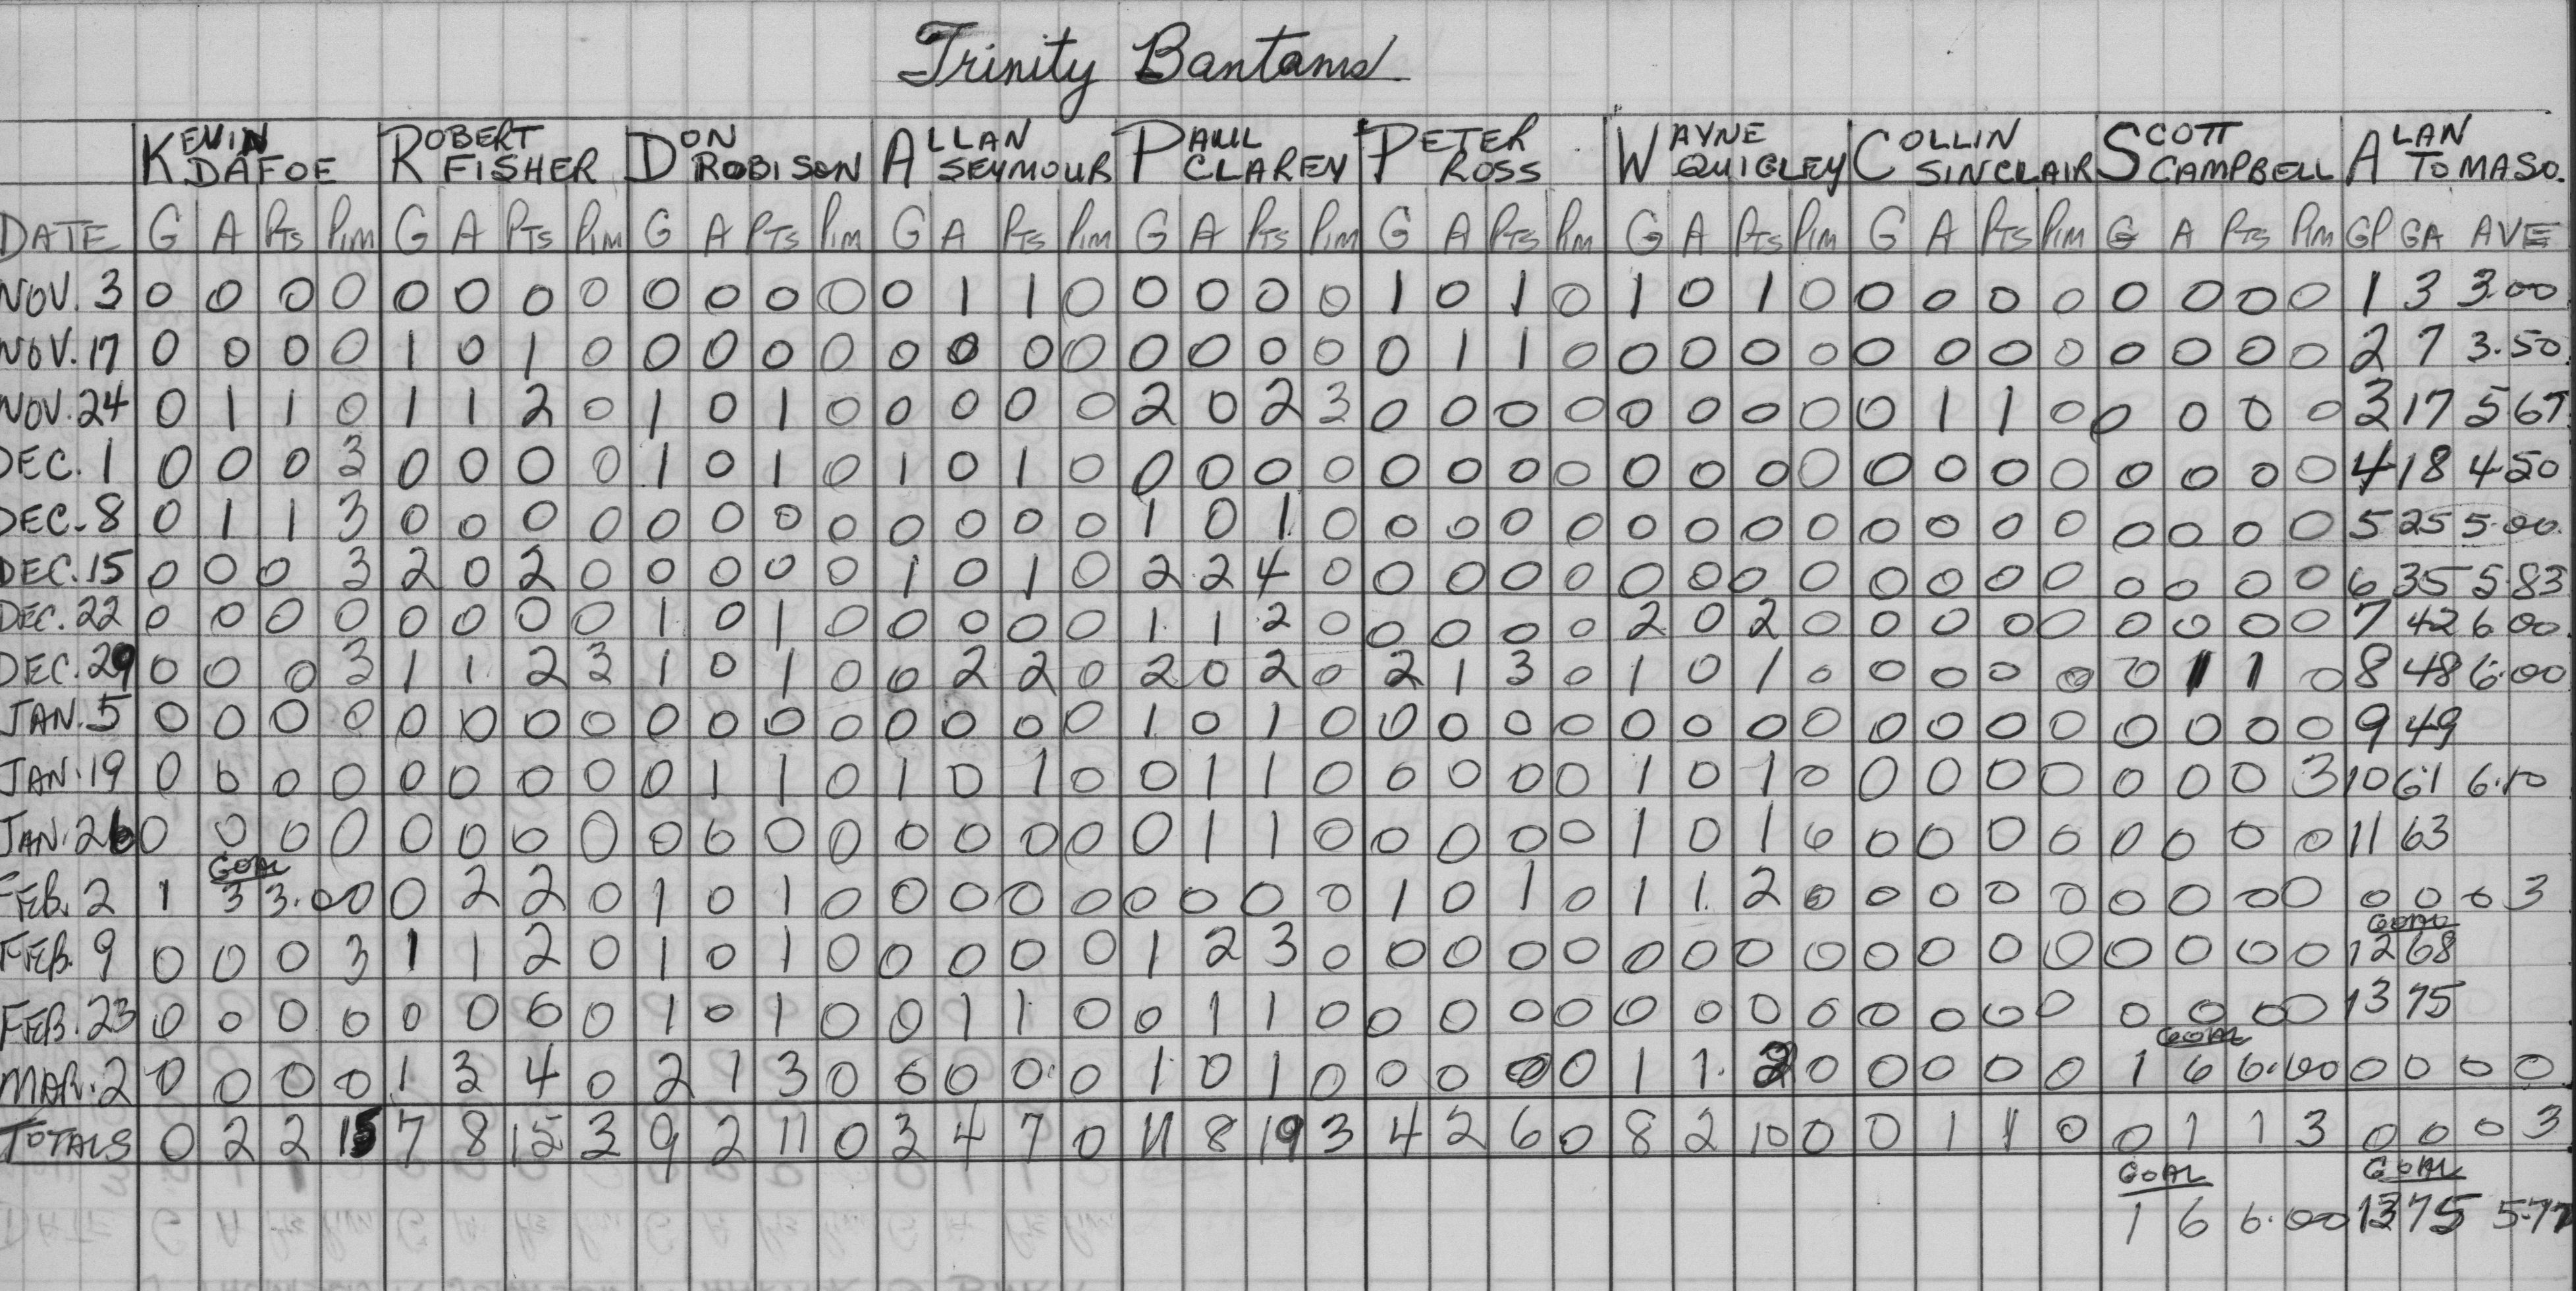 Trinity Bantams
KEVIN DAFOE ROBERT FISHER DON ROBISON ALLAN SEYMOUR PAUL CLAREY PETER ROSS WAYNE QUIGLEY COLLIN SINCLAIR SCOTT CAMPBELL ALAN TOMASO.
DATE G A Pts Pim G A Pts Pim G A Pts Pim G A Pts Pim G A Pts Pim G A Pts Pim G A Pts Pim G A Pts Pim G A Pts Pim GP GA AVE
NOV. 3 0 0 0 0 0 0 0 0 0 0 0 0 0 1 1 0 0 0 0 0 1 0 1 0 1 0 1 0 0 0 0 0 0 0 0 0 1 3 3.00
NOV. 17 0 0 0 0 1 0 1 0 0 0 0 0 0 0 0 0 0 0 0 0 0 1 1 0 0 0 0 0 0 0 0 0 0 0 0 0 2 7 3.50
NOV. 24 0 1 1 0 1 1 2 0 1 0 1 0 0 0 0 0 2 0 2 3 0 0 0 0 0 0 0 0 0 1 1 0 0 0 0 0 3 17 5 67
DEC. 1 0 0 0 3 0 0 0 0 1 0 1 0 1 0 1 0 0 0 0 0 0 0 0 0 0 0 0 0 0 0 0 0 0 0 0 0 4 18 4 50
DEC. 8 0 1 1 3 0 0 0 0 0 0 0 0 0 0 0 0 1 0 1 0 0 0 0 0 0 0 0 0 0 0 0 0 0 0 0 0 5 25 5.00
DEC. 15 0 0 0 3 2 0 2 0 0 0 0 0 1 0 1 0 2 2 4 0 0 0 0 0 0 0 0 0 0 0 0 0 0 0 0 0 6 35 5.83
DEC. 22 0 0 0 0 0 0 0 0 1 0 1 0 0 0 0 0 1 1 2 0 0 0 0 0 2 0 2 0 0 0 0 0 0 0 0 0 7 42 6 00
DEC. 29 0 0 0 3 1 1 2 3 1 0 1 0 0 2 2 0 2 0 2 0 2 1 3 0 1 0 1 0 0 0 0 0 0 1 1 0 8 48 6.00
JAN. 5 0 0 0 0 0 0 0 0 0 0 0 0 0 0 0 0 1 0 1 0 0 0 0 0 0 0 0 0 0 0 0 0 0 0 0 0 9 49
JAN. 19 0 0 0 0 0 0 0 0 0 1 1 0 1 0 1 0 0 1 1 0 0 0 0 0 1 0 1 0 0 0 0 0 0 0 0 3 10 61 6.10
JAN. 26 0 0 0 0 0 0 0 0 0 0 0 0 0 0 0 0 0 1 1 0 0 0 0 0 1 0 1 0 0 0 0 0 0 0 0 0 11 63
GOAL
FEB. 2 1 3 3.00 0 2 2 0 1 0 1 0 0 0 0 0 0 0 0 0 1 0 1 0 1 1 2 0 0 0 0 0 0 0 0 0 0 0 0 3
GOAL
FEB. 9 0 0 0 3 1 1 2 0 1 0 1 0 0 0 0 0 1 2 3 0 0 0 0 0 0 0 0 0 0 0 0 0 0 0 0 0 12 68
FEB. 23 0 0 0 0 0 0 0 0 1 0 1 0 0 1 1 0 0 1 1 0 0 0 0 0 0 0 0 0 0 0 0 0 0 0 0 0 13 75
GOAL
MAR. 2 0 0 0 0 1 3 4 0 2 1 3 0 0 0 0 0 1 0 1 0 0 0 0 0 1 1 2 0 0 0 0 0 1 6 6.00 0 0 0 0
TOTALS 0 2 2 15 7 8 15 3 9 2 11 0 3 4 7 0 11 8 19 3 4 2 6 0 8 2 10 0 0 1 1 0 0 1 1 3 0 0 0 3
GOAL GOAL
1 6 6.00 13 75 5.77